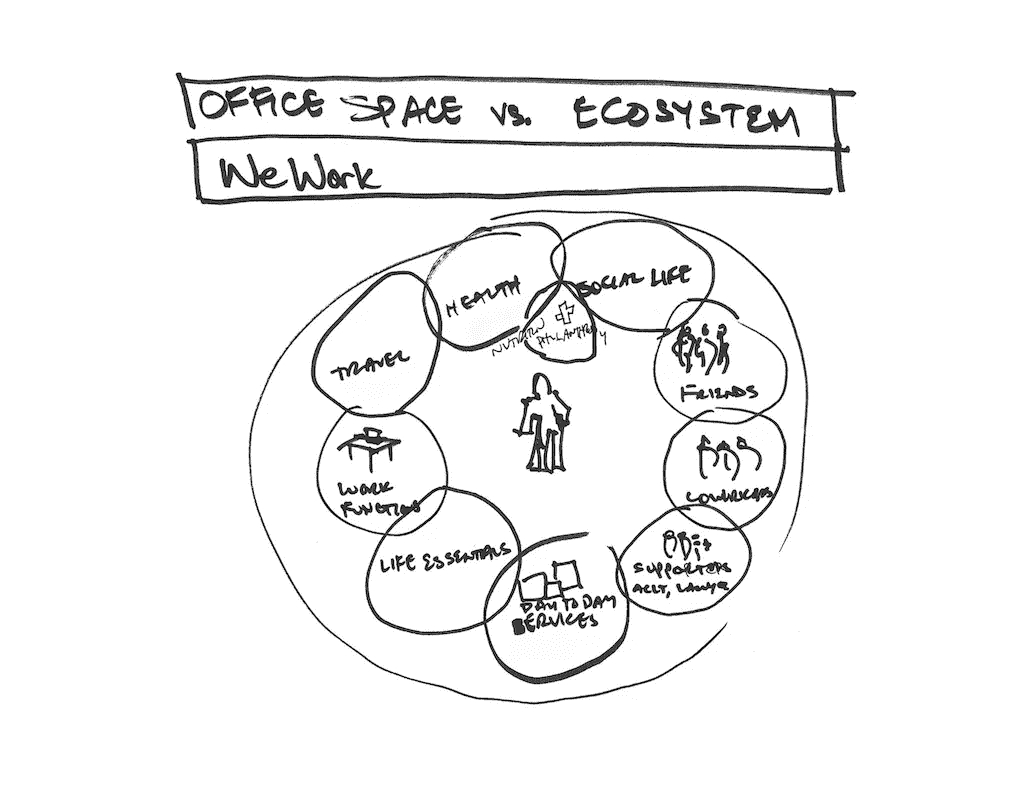 OFFICE SPACE vs. ECOSYSTEM
WeWork
HEALTH
SOCIAL LIFE
NUTRITION
PHILANTHROPY
TRAVEL
FRIENDS
WORK
FUNCTIONS
COWORKERS
LIFE ESSENTIALS
SUPPORTERS
ACCT, LAWYER
DAY TO DAY
SERVICES